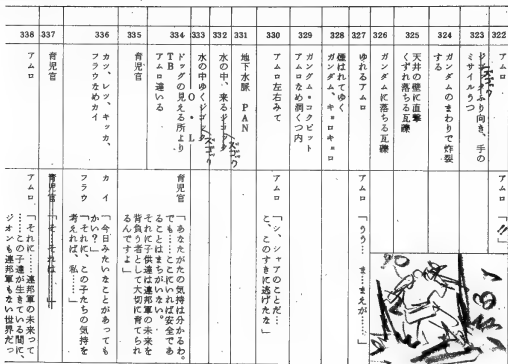 322
アムロ
アムロ「!!」
323
ふり向き、手の
ミサイルうつ
324
ガンダムのまわりで炸裂
する
325
天井の壁に直撃
くずれ落ちる瓦礫
326
ガンダムに落ちる瓦礫
327
ゆれるアムロ
アムロ「うう…ま…まえが……」
328
煙はれてゆく
ガンダム、キョロキョロ
329
ガンダム・コクピット
アムロなめ洞くつ内
330
アムロ左右みて
アムロ「シ、シャアのことだ…
と、このすきに逃げたな」
331
地下水脈 PAN
332
水の中、来るズゴック
333
水の中ゆくズゴック
O・L
334
ドックの見える所より
TB
アムロ達いる
育児官「あなたがたの気持は分かるわ。
でも…ここにいれば安全であ
ることはまちがいない。
それに子供達は連邦軍の未来を
背負う者として大切に育てられ
るんですよ」
335
育児官
336
カツ、レツ、キッカ、
フラウなめカイ
カイ「今日みたいなことがあっても
かい?」
フラウ「それに、この子たちの気持を
考えれば、私…」
337
育児官
育児官「そ、それは…」
338
アムロ
アムロ「それに……連邦軍の未来って
……この子達が生きている間に、
ジオンも連邦軍もない世界だっ